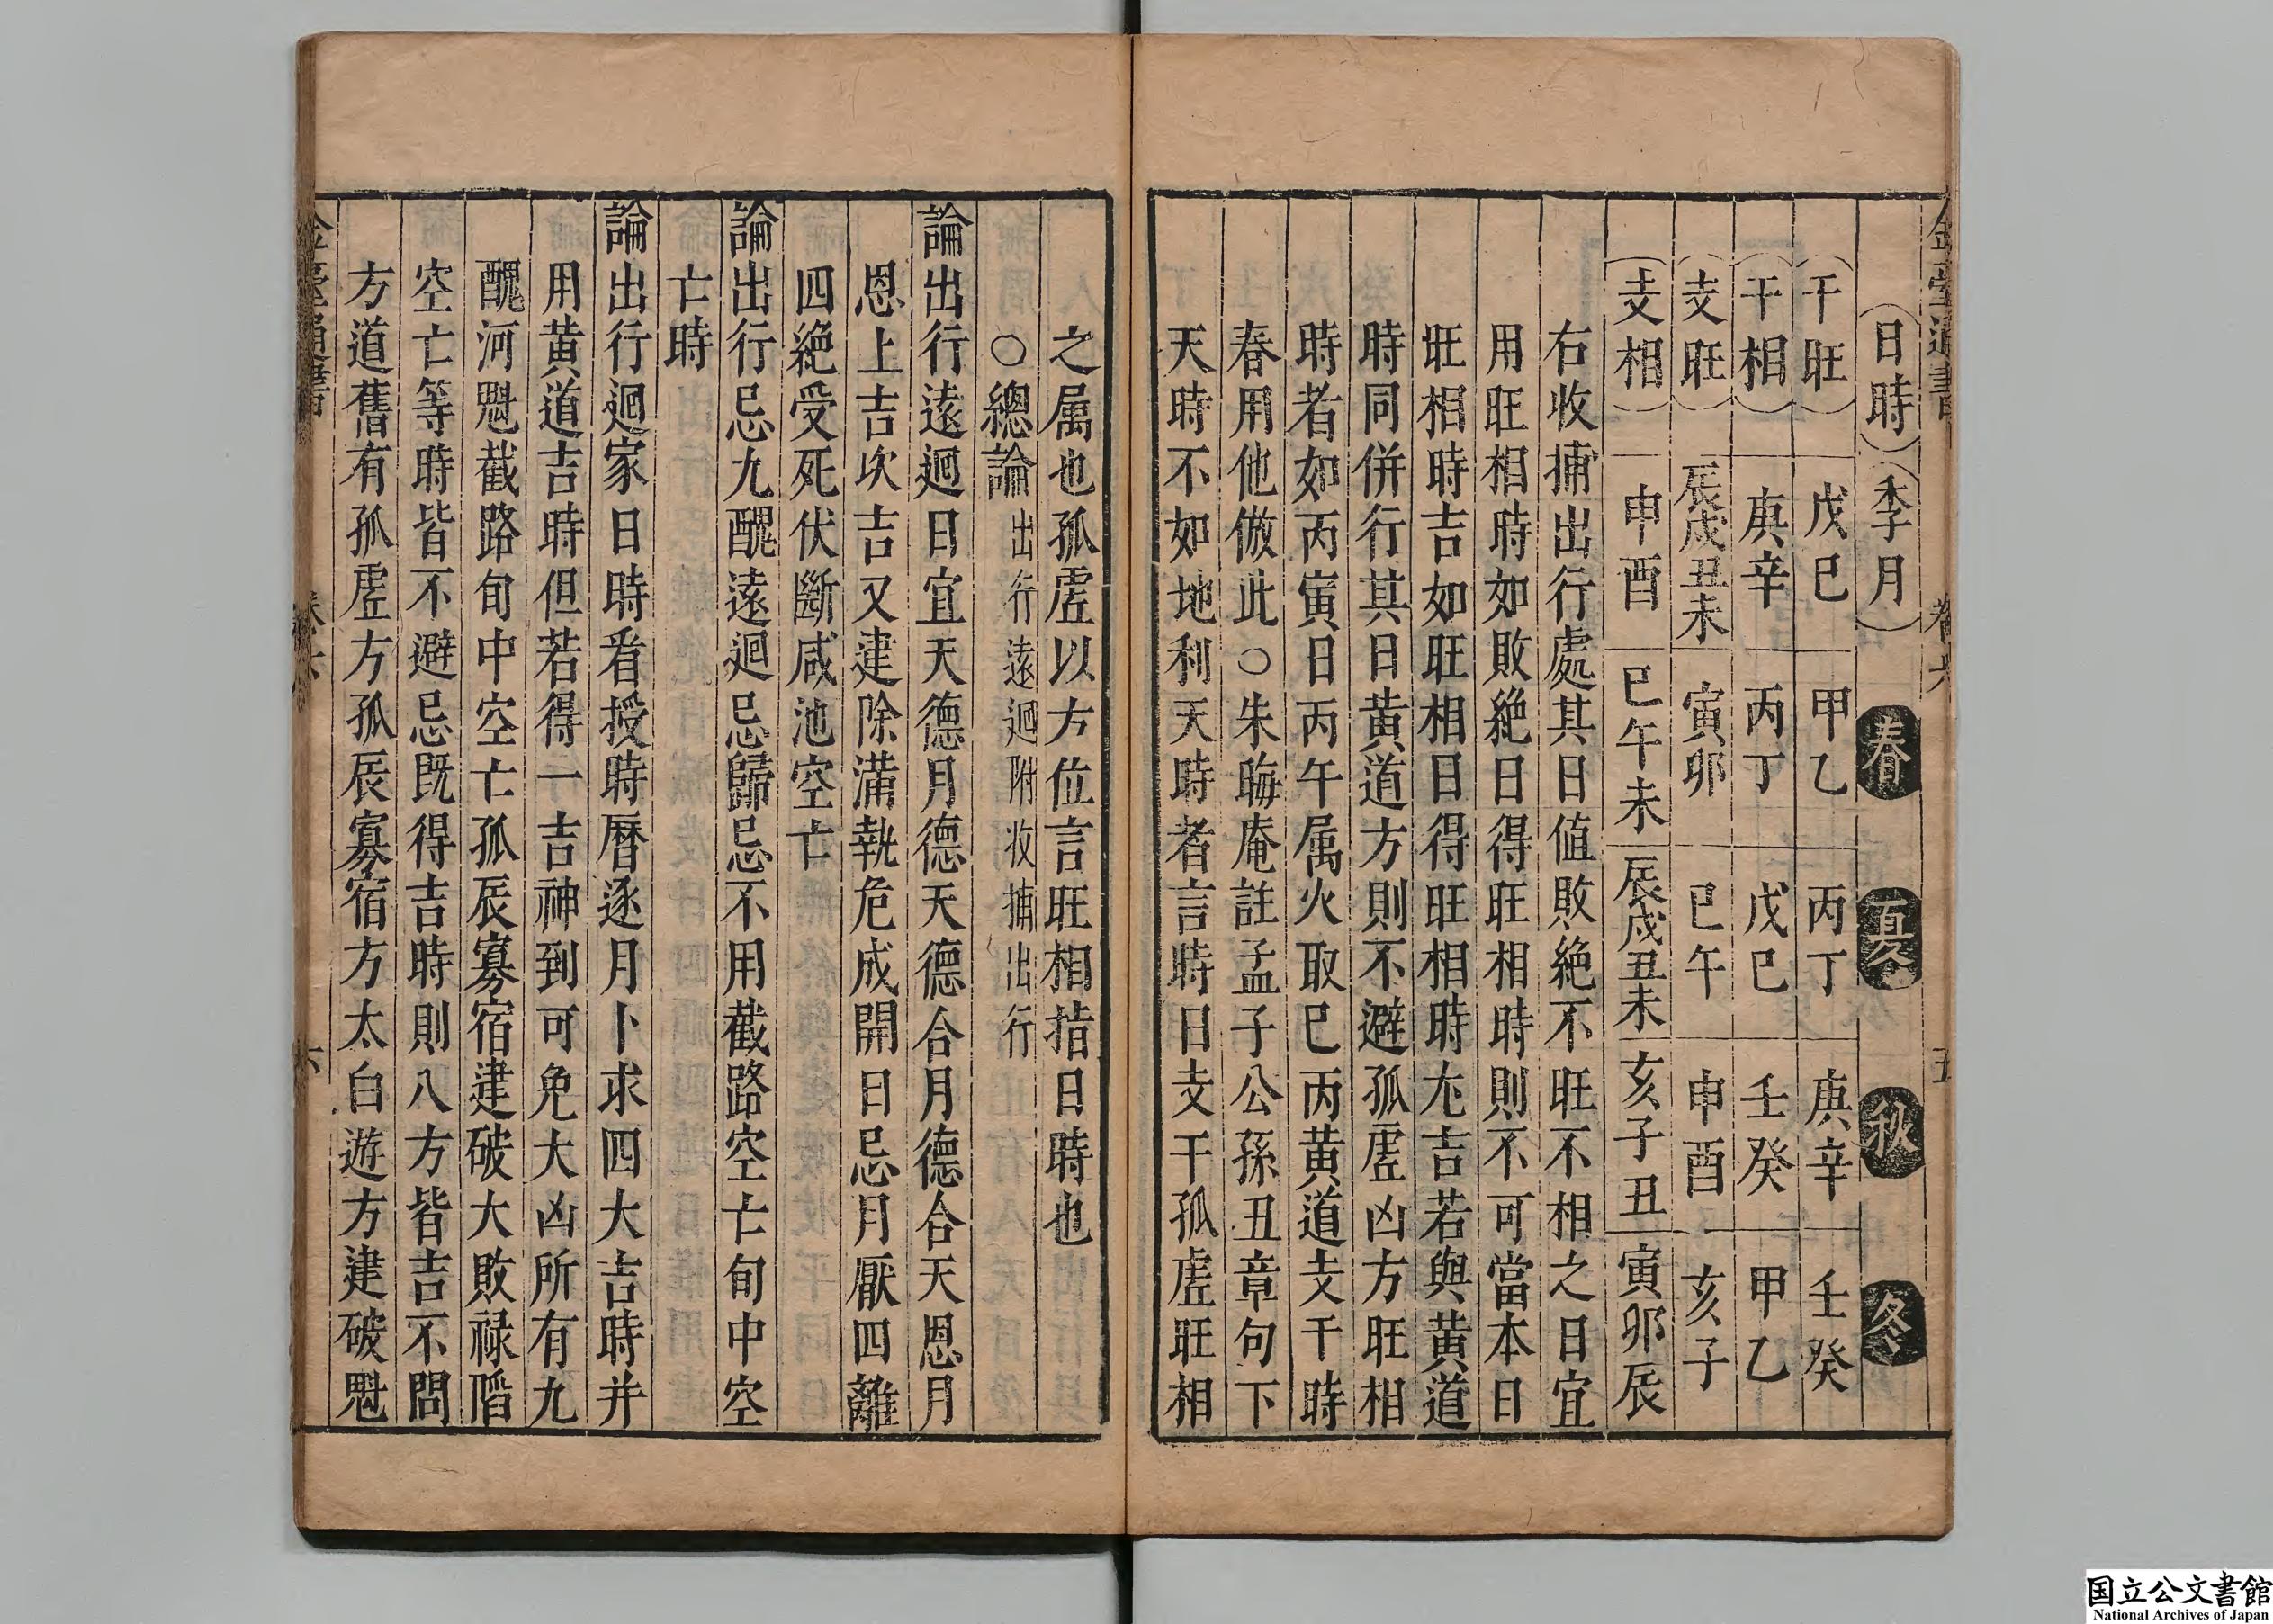 日時　季月　春　夏　秋　冬
干旺　戊巳　甲乙　丙丁　庚辛　壬癸
干相　庚辛　丙丁　戊巳　壬癸　甲乙
支旺　辰戌丑未　寅卯　巳午　申酉　亥子
支相　申酉　巳午未　辰戌丑未　亥子丑　寅卯辰
右收捕出行處其日值敗絶不旺不相之日宜
用旺相時如敗絶日得旺相時則不可當本日
旺相時吉如旺相日得旺相時尤吉若與黄道
時同併行其日黄道方則不避孤虗凶方旺相
時者如丙寅日丙午属火取巳丙黄道支干時
春用他倣此○朱晦庵註孟子公孫丑章句下
天時不如地利天時者言時日支干孤虗旺相
之属也孤虗以方位言旺相指日時也
○總論出行遠迴附收捕出行
論出行遠迴日宜天德月德天德合月德合天恩月
恩上吉次吉又建除滿執危成開日忌月厭四離
四絶受死伏斷咸池空亡
論出行忌九醜遠迴忌歸忌不用截路空亡旬中空
亡時
論出行迴家日時看授時暦逐月卜求四大吉時并
用黄道吉時但若得一吉神到可免大凶所有九
醜河魁截路旬中空亡孤辰寡宿建破大敗禄陷
空亡等時皆不避忌既得吉時則八方皆吉不問
方道舊有孤虗方孤辰寡宿方太白遊方建破魁
国立公文書館
National Archives of Japan